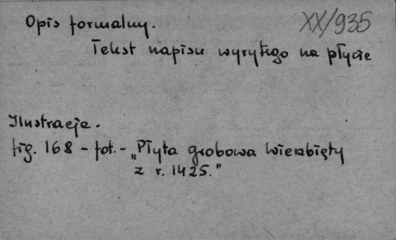 Opis formalny.
XX/935
Tekst napisu wyrytego na płycie
Ilustracje.
fig. 168 - fot. - "Płyta grobowa Wierzbięty
z r. 1425."